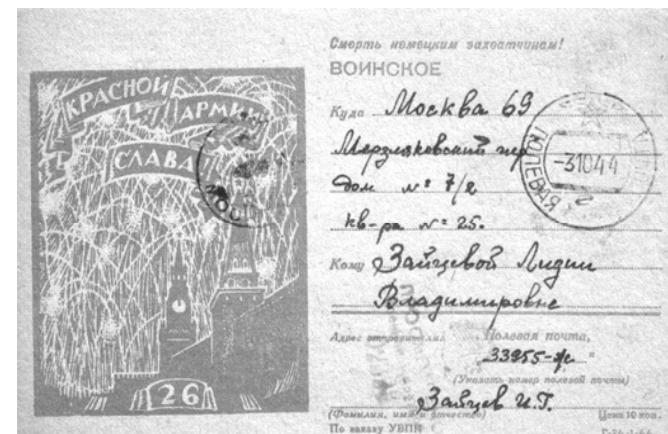 КРАСНОЙ
АРМИИ
СЛАВА
26
Смерть немецким захватчикам!
ВОИНСКОЕ
Куда Москва 69
Мерзляковский пер
дом № 7/2
кв-ра № 25.
Кому Зайцевой Лидии
Владимировне
Адрес отправителя: Полевая почта,
33955-
(Указать номер полевой почты)
Зайцев И.Г.
(Фамилия, имя и отчество)
Цена 10 коп.
По заказу УВПИ
ПОЛЕВАЯ
-31044